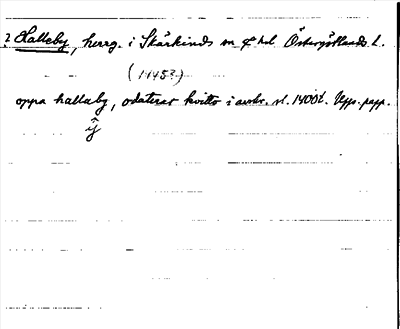 ? Halleby, herrg. i Skärkinds sn o hd. Östergötlands l.
(1445?)
oppa hallaby, odaterat kvitto i avskr. sl. 1400t. Upps. papp.
ÿ